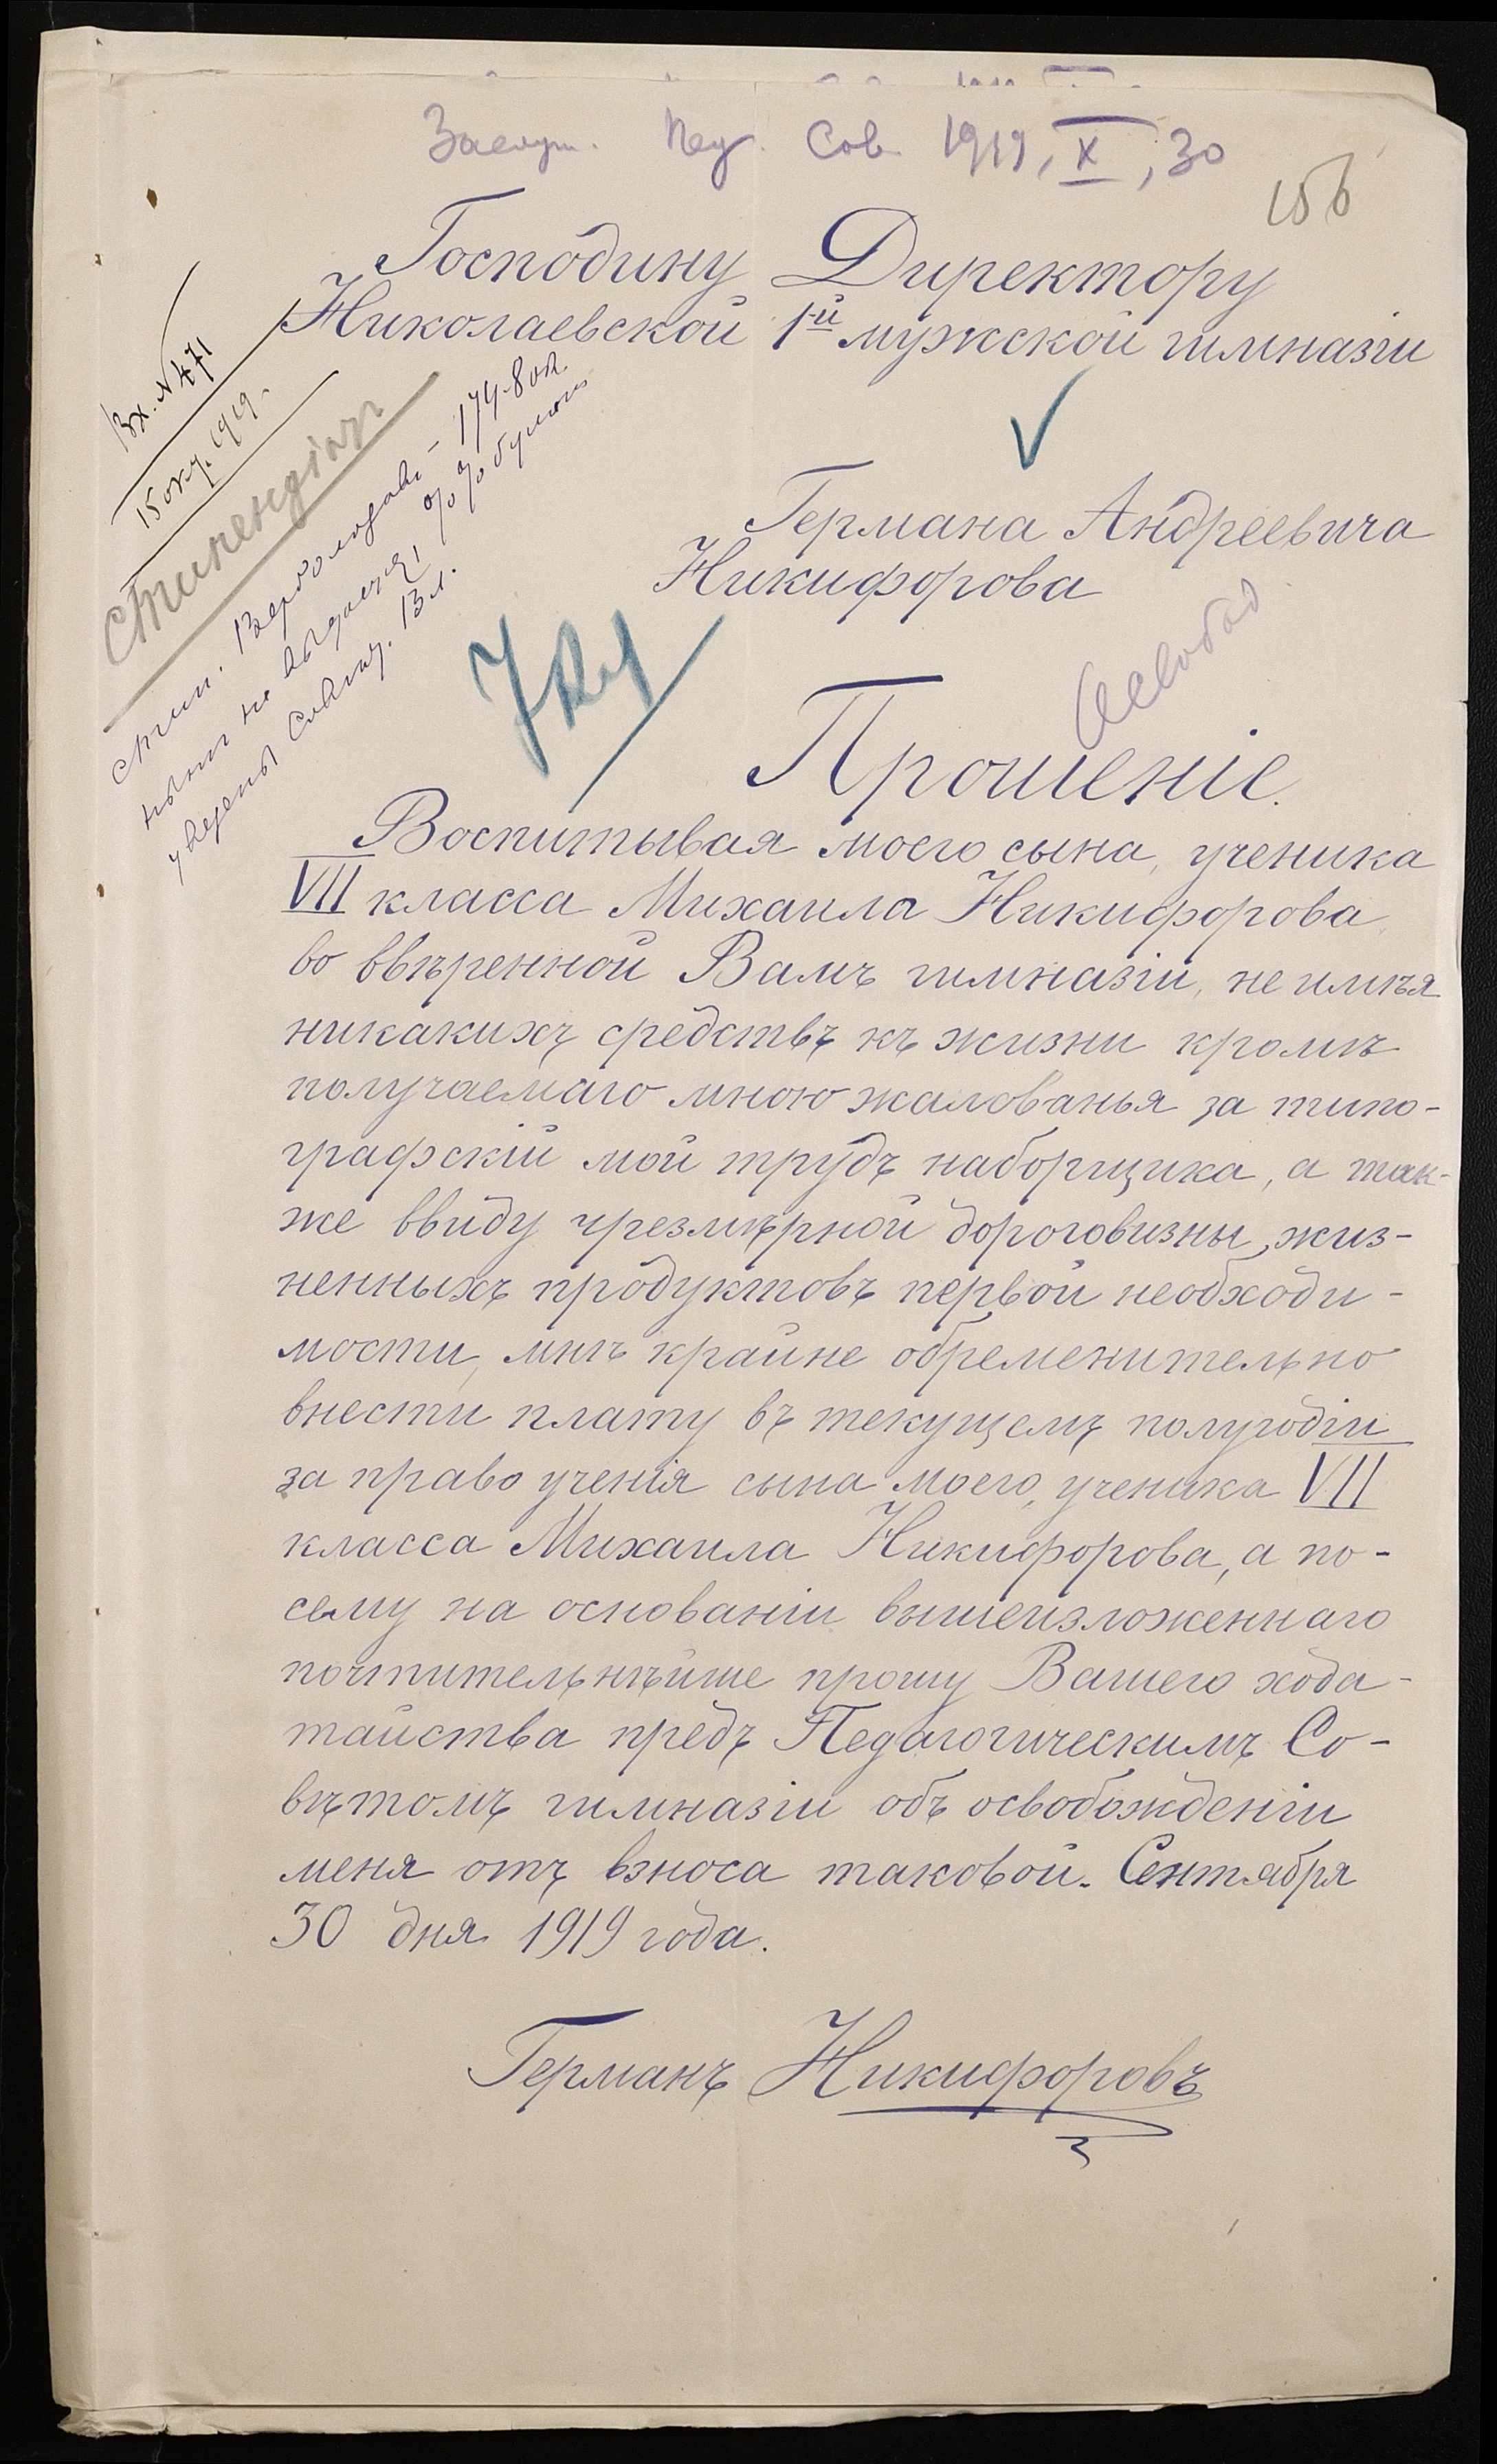 Заслуш. Пед. Сов. 1919, X, 30
156
Господину Директору
Николаевской 1-й мужской гимназіи
Вх. № 471
15 окт. 1919.
Стипендіат
стип. – 174 80 к.
ныне не выдается, % % бумаги
Германа Андреевича
Никифорова
Освобод
Прошеніе.
Воспитывая моего сына, ученика
VII класса Михаила Никифорова,
во ввѣренной Вамъ гимназіи, не имѣя
никакихъ средствъ къ жизни кромѣ
получаемаго мною жалованья за типо-
графскій мой трудъ наборщика, а так-
же ввиду чрезмѣрной дороговизны жиз-
ненныхъ продуктовъ первой необходи-
мости, мнѣ крайне обременительно
внести плату въ текущемъ полугодіи
за право ученія сына моего, ученика VII
класса Михаила Никифорова, а по-
сему на основаніи вышеизложеннаго
почтительнѣйше прошу Вашего хода-
тайства предъ Педагогическимъ Со-
вѣтомъ гимназіи объ освобожденіи
меня отъ взноса таковой. Сентября
30 дня 1919 года.
Германъ Никифоровъ